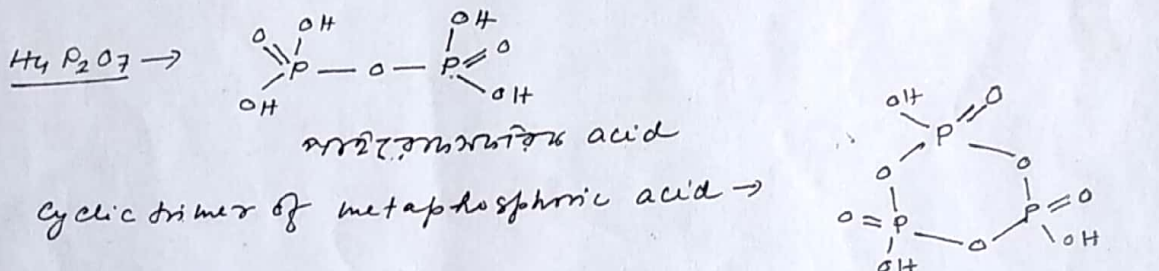 H4 P2O7 →
O OH OH O
P — O — P
OH OH
acid
Cyclic trimer of metaphosphoric acid →
OH O
P
O O
O=P P=O
O OH
OH